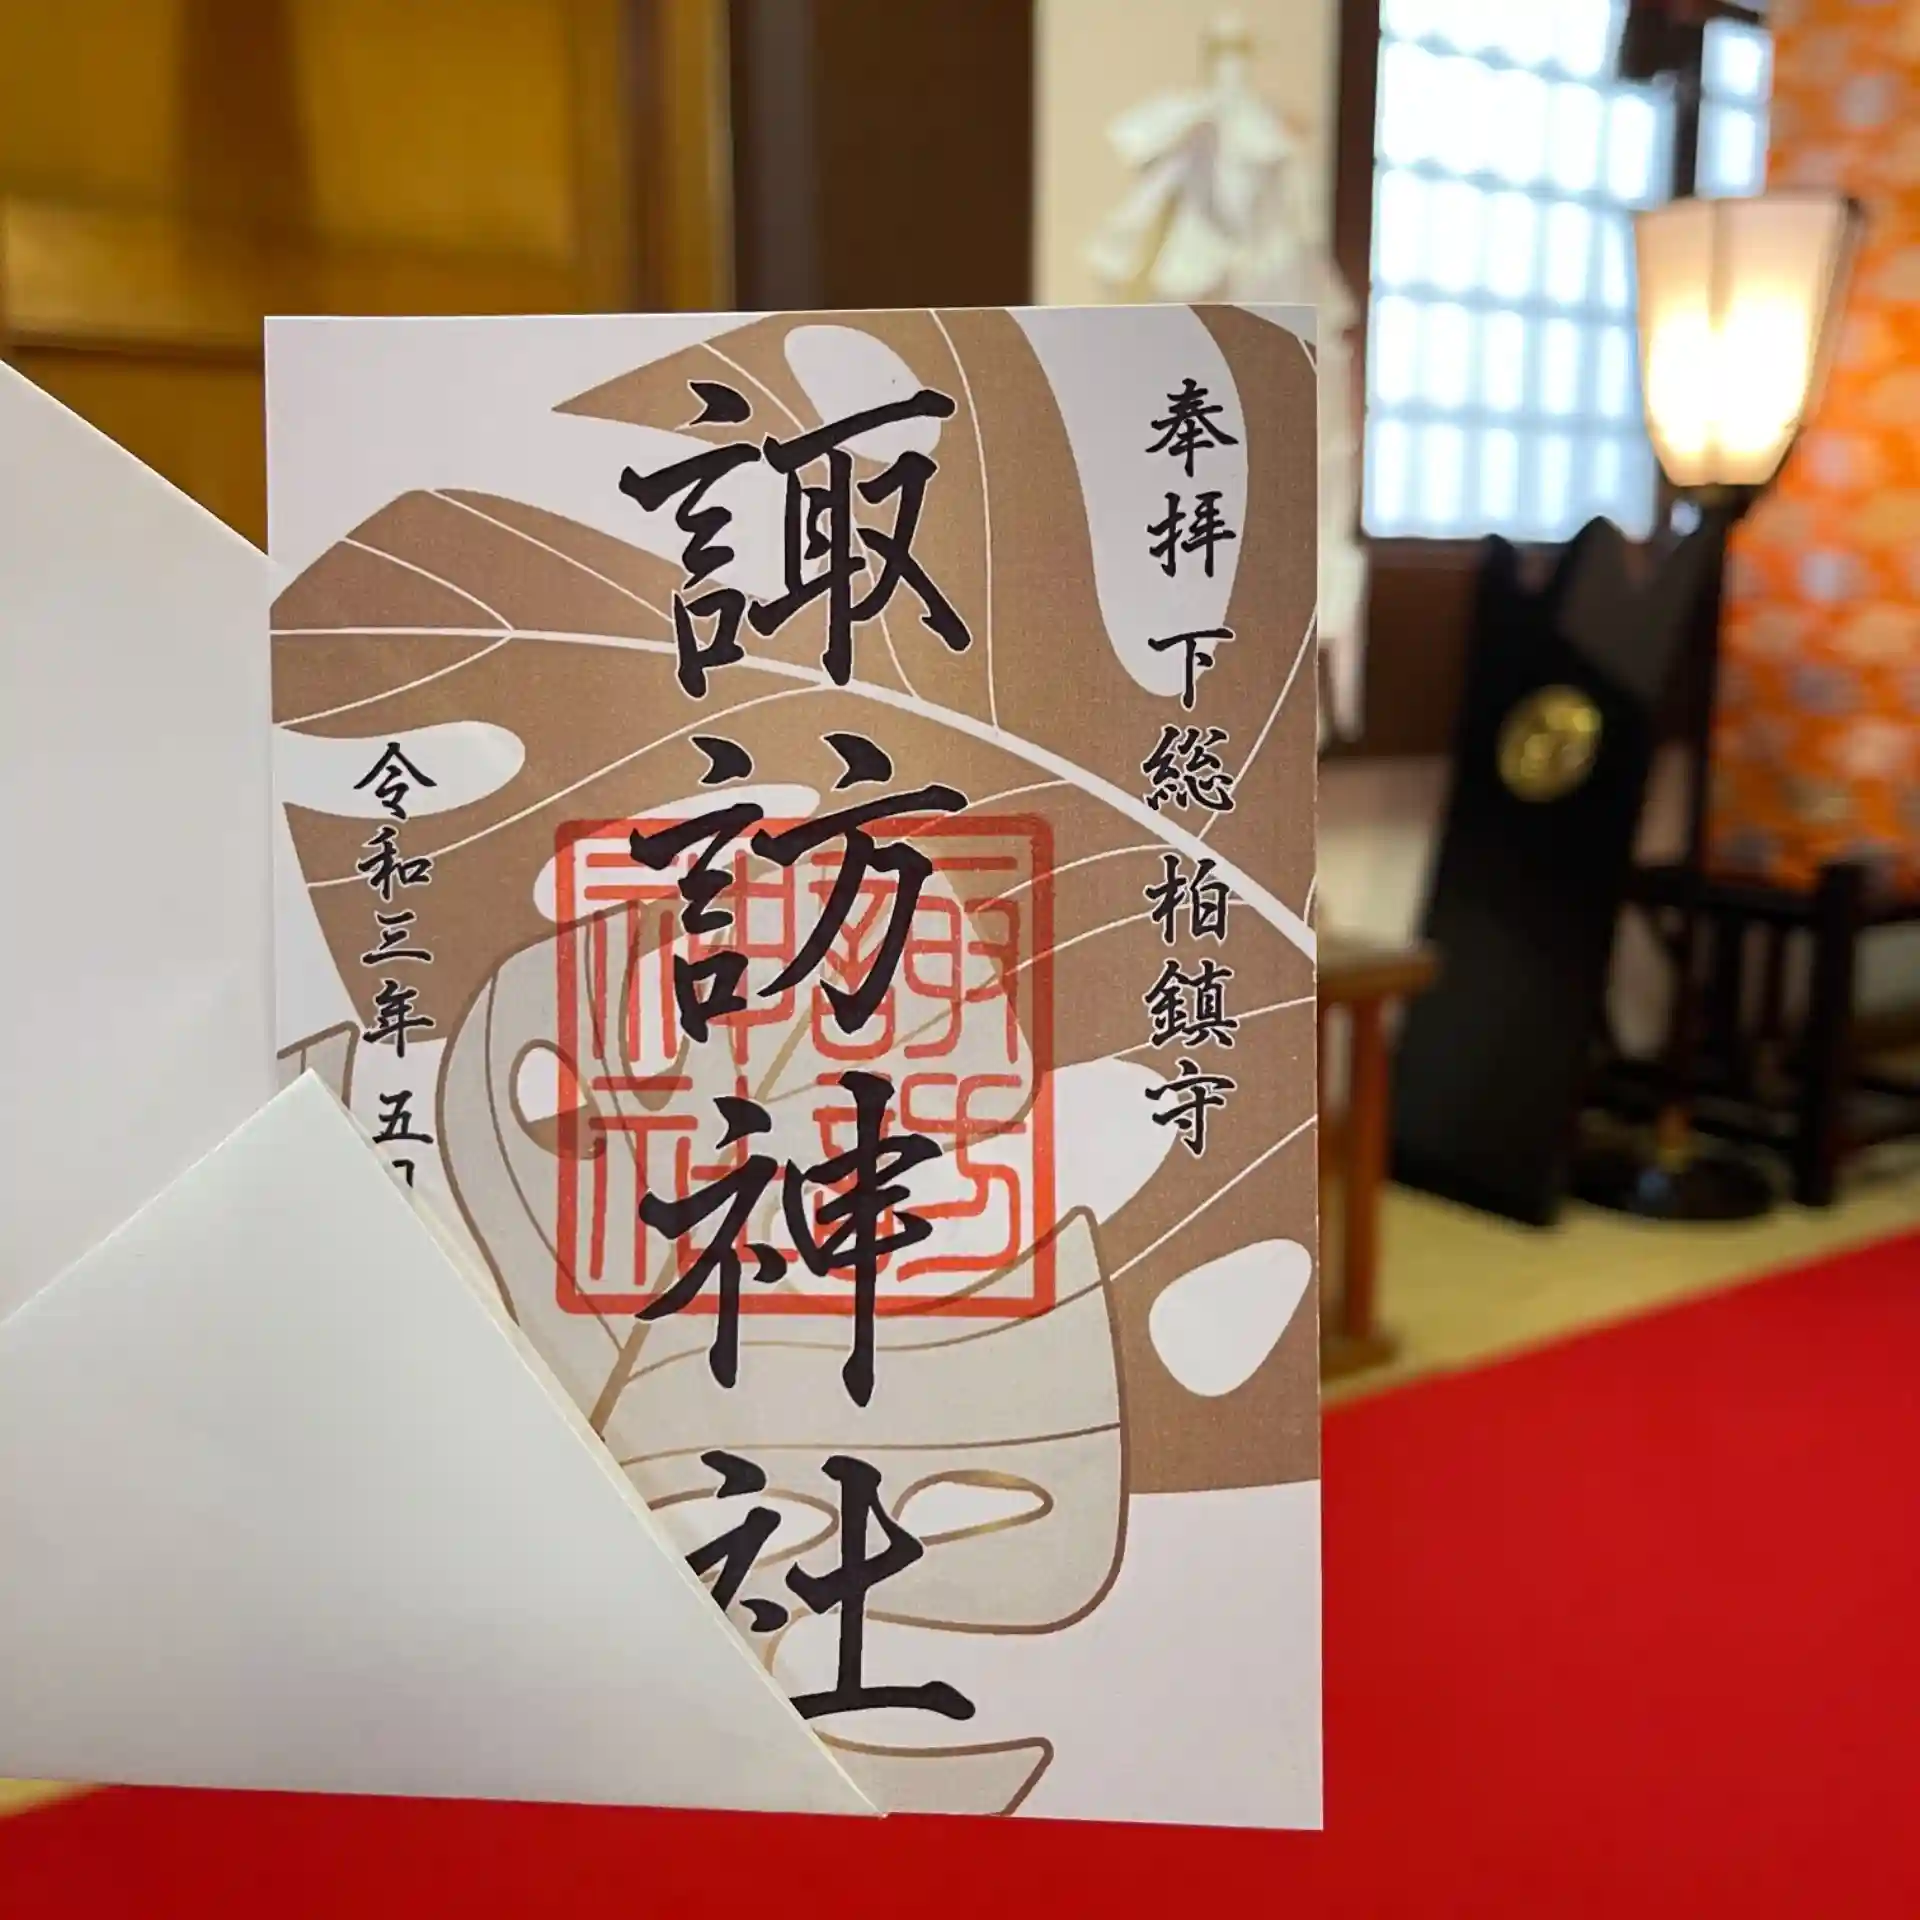 奉拝 下総柏鎮守
諏訪神社
諏訪神社
令和三年 五